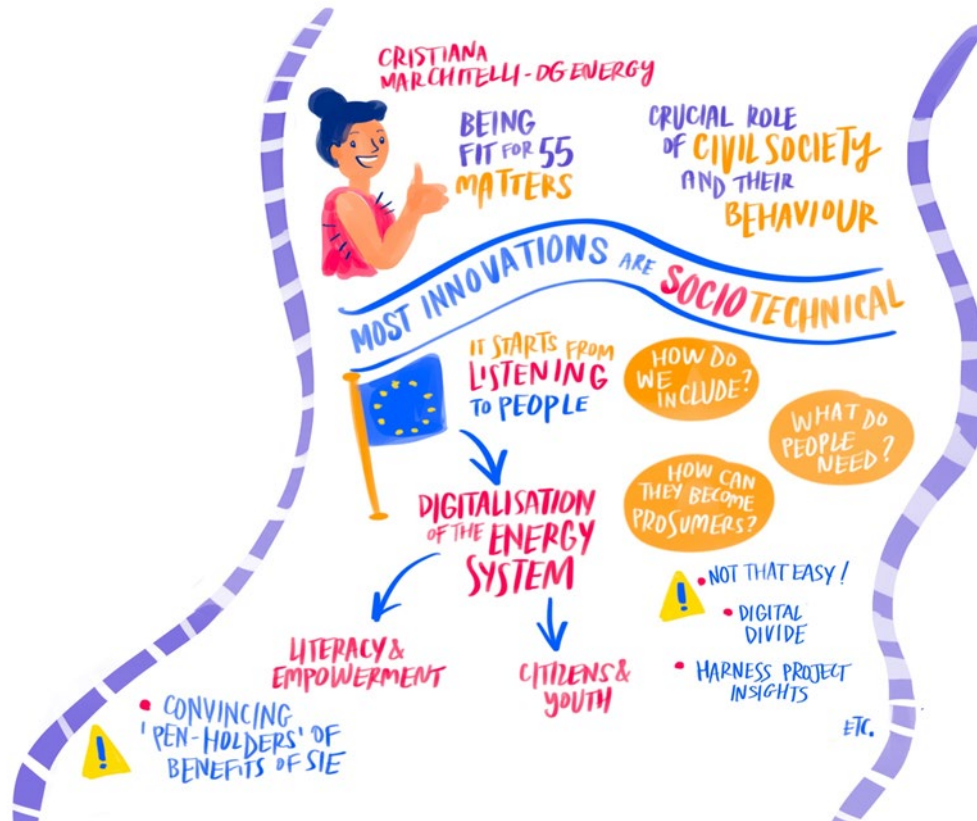 CRISTIANA
MARCHITELLI - DG ENERGY
BEING
FIT FOR 55
MATTERS
CRUCIAL ROLE
OF CIVIL SOCIETY
AND THEIR
BEHAVIOUR
MOST INNOVATIONS ARE SOCIOTECHNICAL
IT STARTS FROM
LISTENING
TO PEOPLE
HOW DO
WE
INCLUDE?
WHAT DO
PEOPLE
NEED?
HOW CAN
THEY BECOME
PROSUMERS?
DIGITALISATION
OF THE ENERGY
SYSTEM
!
• NOT THAT EASY!
• DIGITAL
DIVIDE
• HARNESS PROJECT
INSIGHTS
ETC.
LITERACY &
EMPOWERMENT
CITIZENS &
YOUTH
!
• CONVINCING
'PEN-HOLDERS' OF
BENEFITS OF SIE